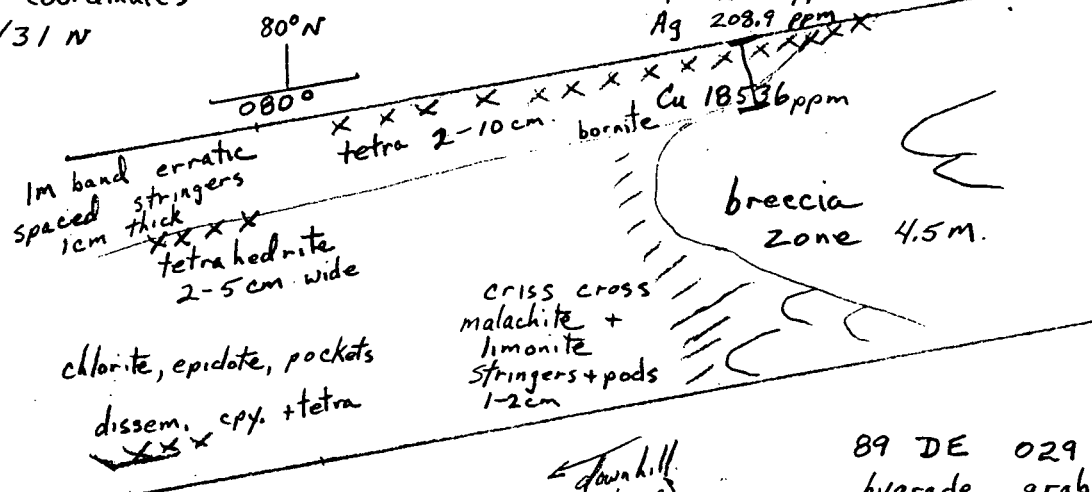 coordinates
/31 N
80° N
080°
Ag 208.9 ppm
Cu 18536 ppm
tetra 2-10 cm.
bornite
1m band erratic
spaced stringers
1cm thick
tetrahedrite
2-5 cm wide
breccia
zone 4.5 m.
criss cross
malachite +
limonite
stringers + pods
1-2cm
chlorite, epidote, pockets
dissem. cpy. + tetra
downhill
89 DE 029